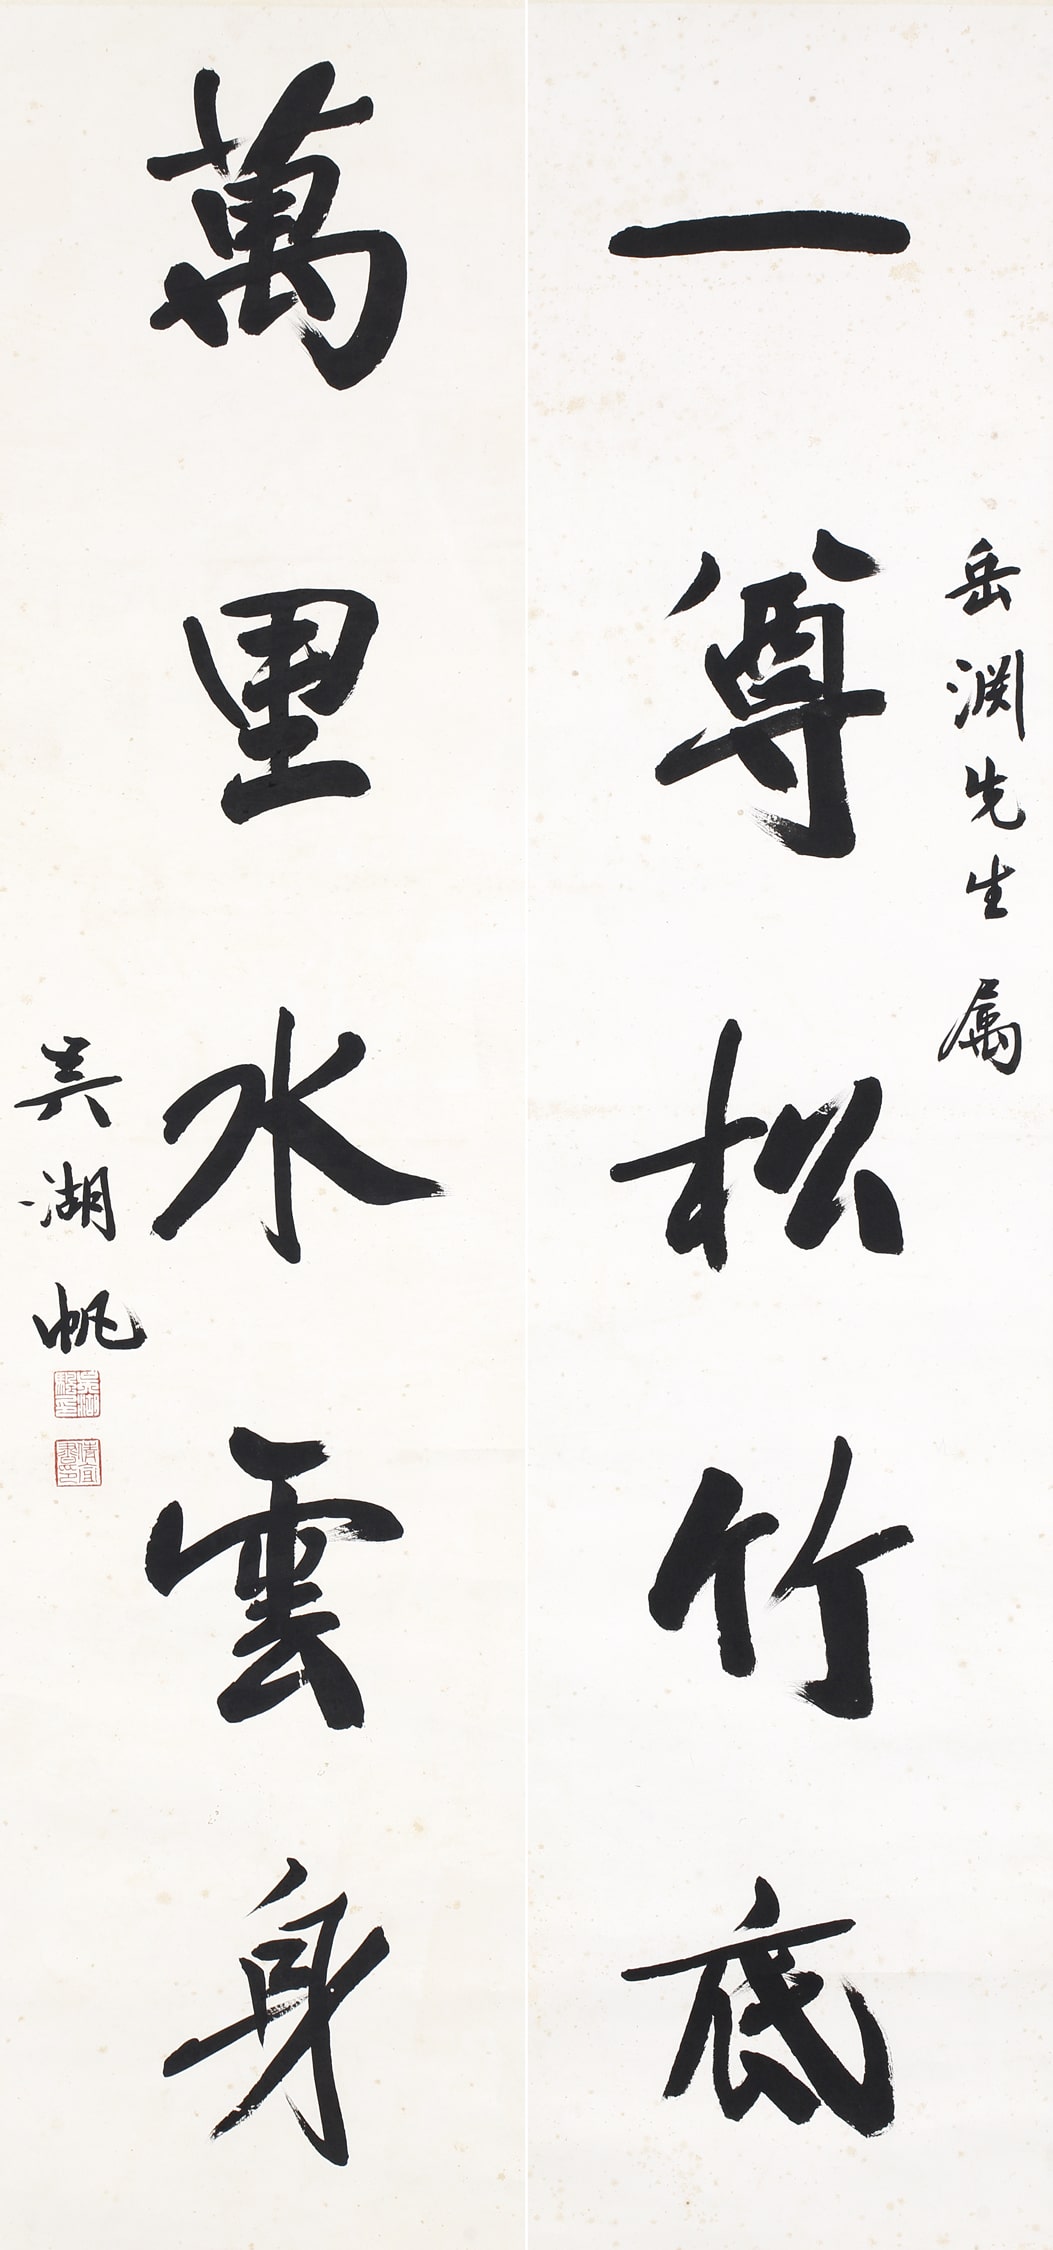 岳渊先生属
一尊松竹底
萬里水雲身
吴湖帆